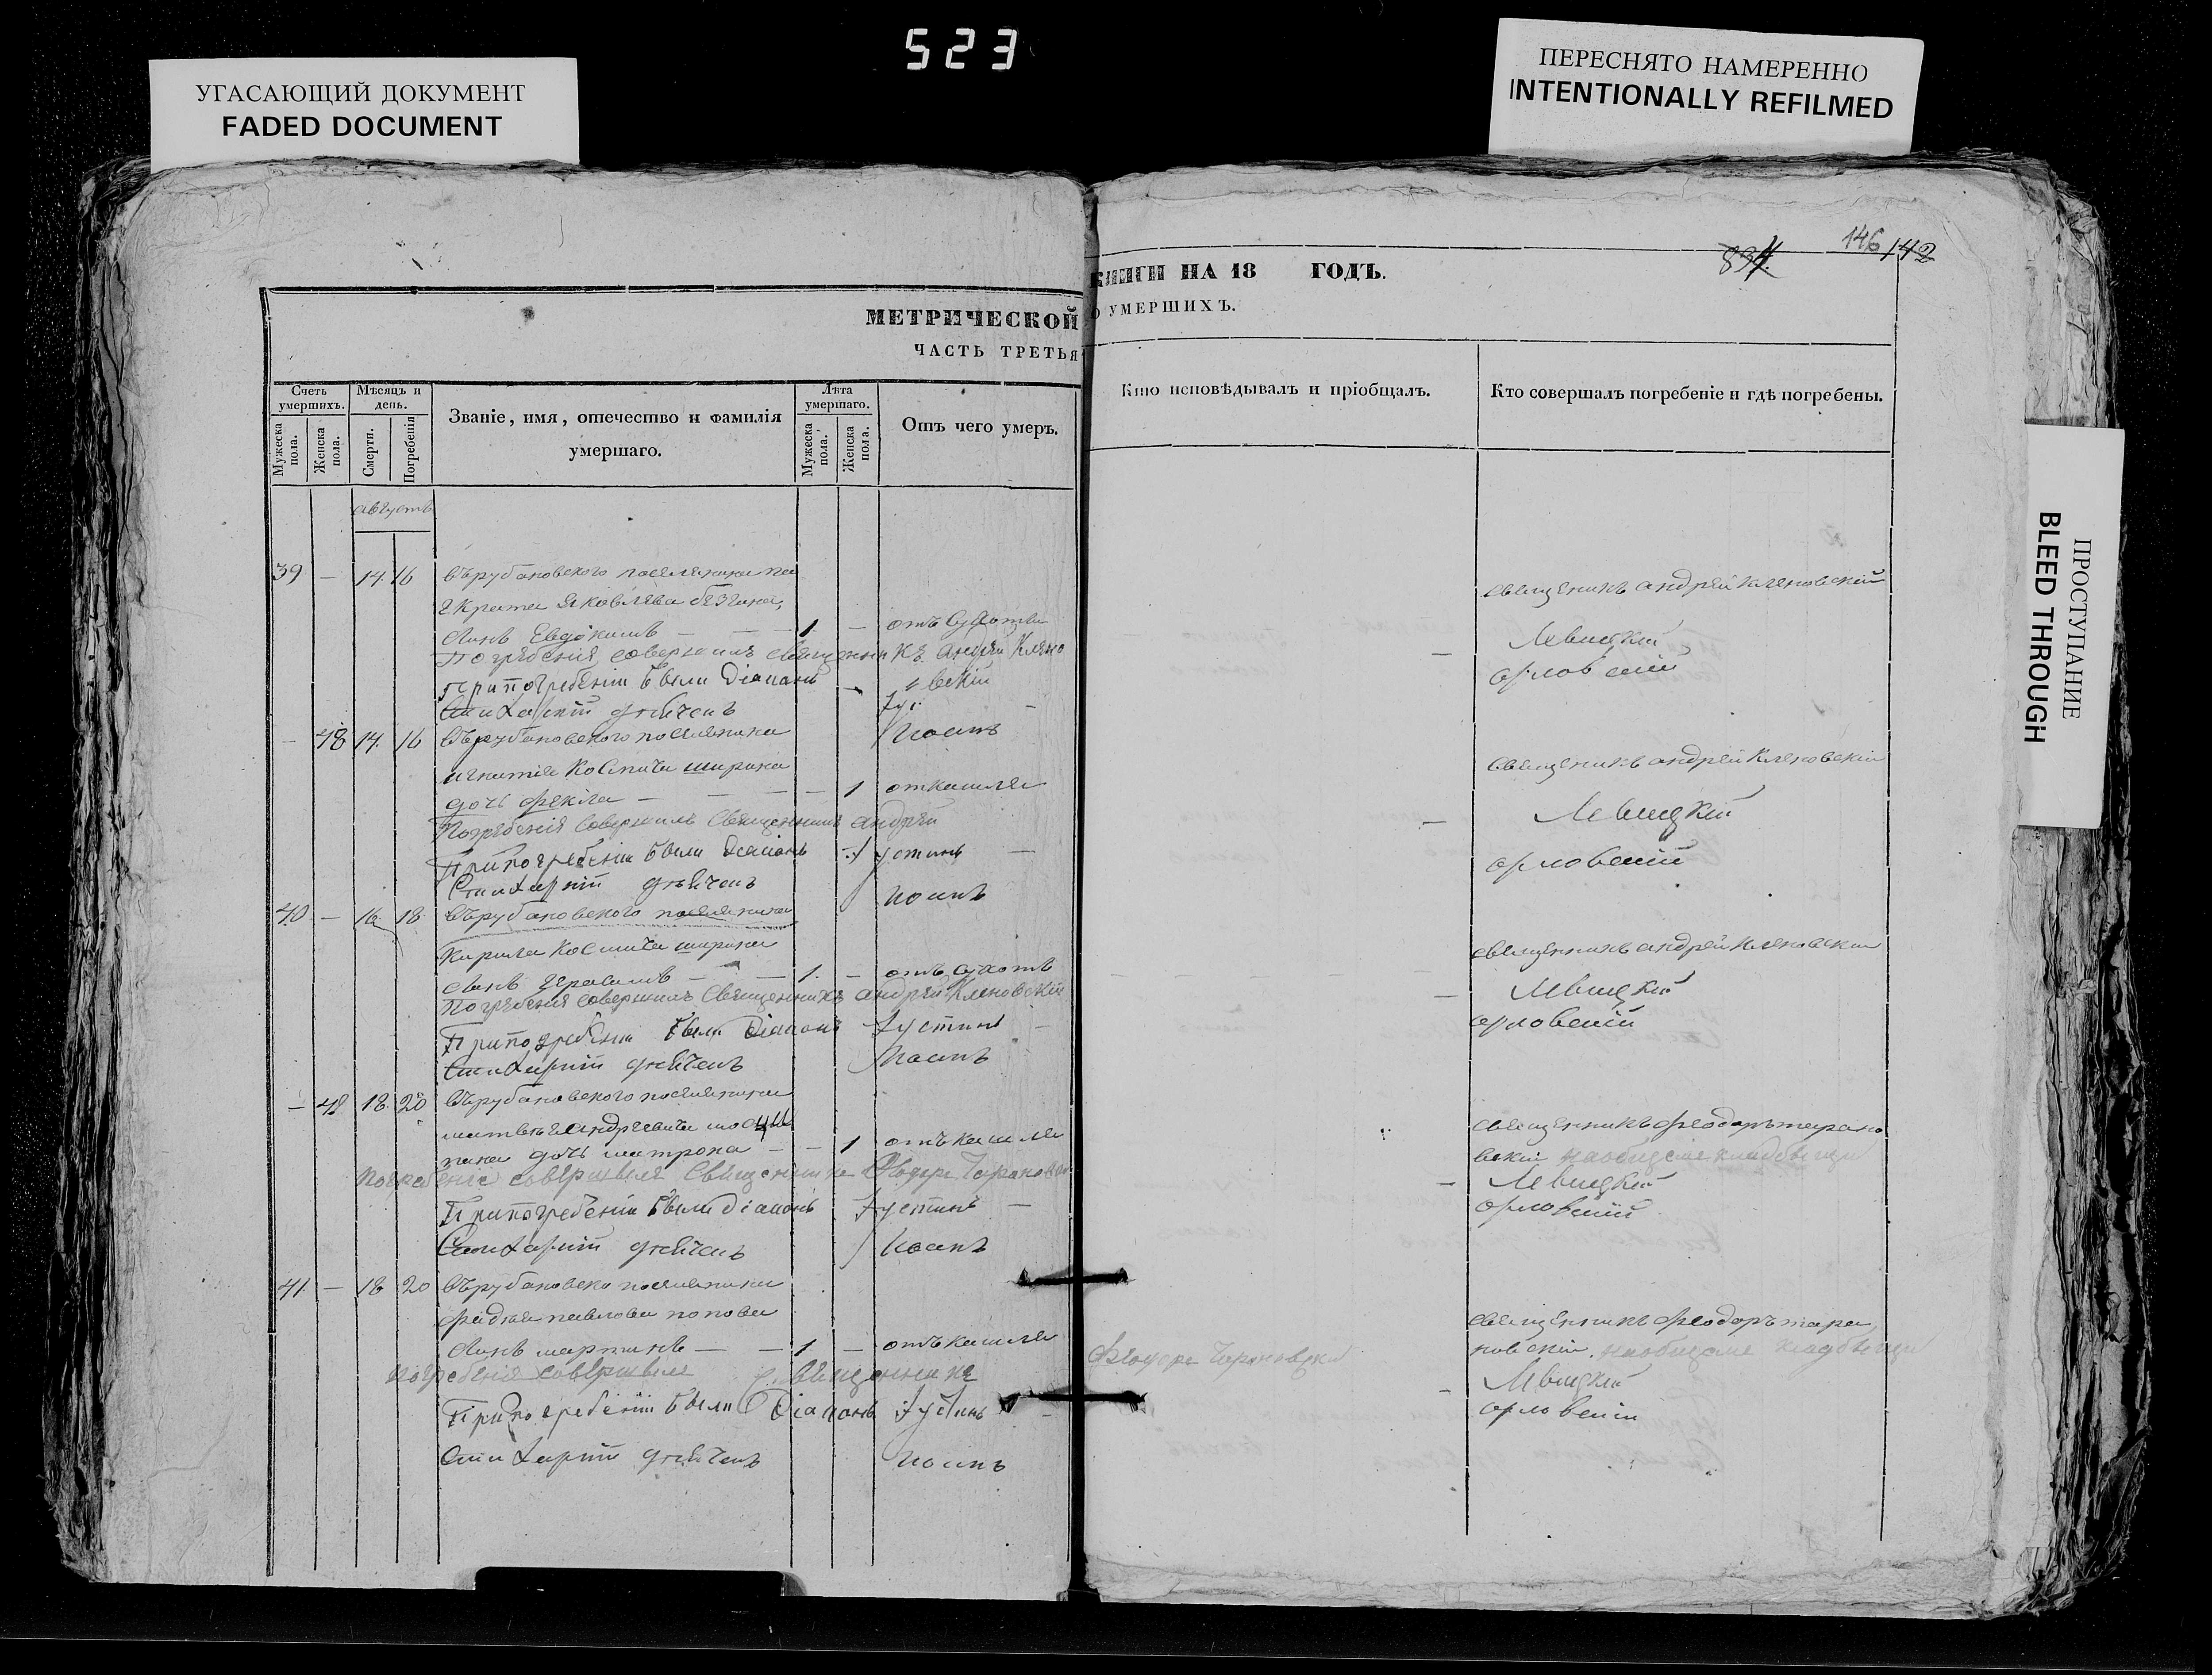 523
УГАСАЮЩИЙ ДОКУМЕНТ
FADED DOCUMENT
ПЕРЕСНЯТО НАМЕРЕННО
INTENTIONALLY REFILMED
ПРОСТУПАНИЕ
BLEED THROUGH
146 142
МЕТРИЧЕСКОЙ
ЧАСТЬ ТРЕТЬЯ
КНИГИ НА 18 ГОДЪ.
О УМЕРШИХЪ.
Счетъ умершихъ.
Мужеска пола.
Женска пола.
Мѣсяцъ и день.
Смерти.
Погребенія
Званіе, имя, отечество и фамилія умершаго.
Лѣта умершаго.
Мужеска пола.
Женска пола.
Отъ чего умеръ.
Кто исповѣдывалъ и пріобщалъ.
Кто совершалъ погребеніе и гдѣ погребены.
августъ
39 — 14 16 Върубановского поселянина
Яковлева
сынъ Евдокимъ — 1. —
Погребенія совершилъ священникъ Андрей Клено
При погребеніи были Діаконъ вскій
Стихарній дьячекъ
Иоанъ
священникъ андрей кленовский
Левицкий
орловский
— 48 14 16 Върубановского поселянина
игнатія Космича ширина
дочь фекла — — 1 от кашля
Погребенія совершилъ священникъ андрей
При погребеніи были Діаконъ Іустинъ —
Стихарній дьячекъ Иоанъ
священникъ андрей кленовский
Левицкий
орловский
40 — 16 18 Върубановского поселянина
Кирила Космича ширина
сынъ герасимъ — — 1. —
Погребенія совершилъ священникъ андрей Кленовскій
При погребеніи были Діаконъ Іустинъ —
Стихарній дьячекъ Иоанъ
священникъ андрей кленовский
Левицкий
орловский
— 48 18 20 Върубановского поселянина
матвѣя Андреевича
дочь матрона — — 1 отъ кашля
Погребеніе совершилъ священникъ
При погребеніи были Діаконъ Іустинъ —
Стихарній дьячекъ Иоанъ
священникъ феодоръ тарано
вский на общемъ кладбищи
Левицкий
орловский
41 — 18 20 Върубановско поселянина
павлова попова
сынъ мартинъ — — 1 — отъ кашля
погребенія совершилъ священникъ
При погребеніи были Діаконъ Іустинъ —
Стихарній дьячекъ Иоанъ
священникъ феодоръ тара
новский на общемъ кладбищи
Левицкий
орловский